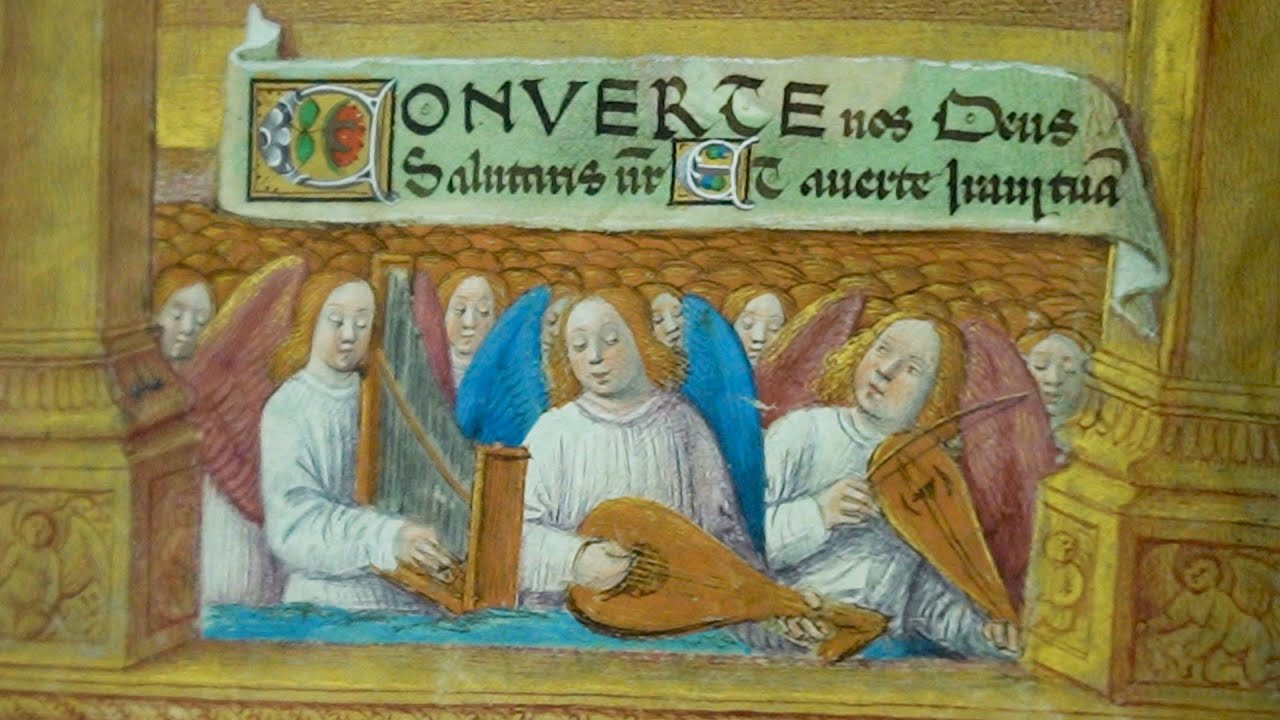 CONVERTE nos Deus
Salutaris nr̄ ET auerte Iram tuā